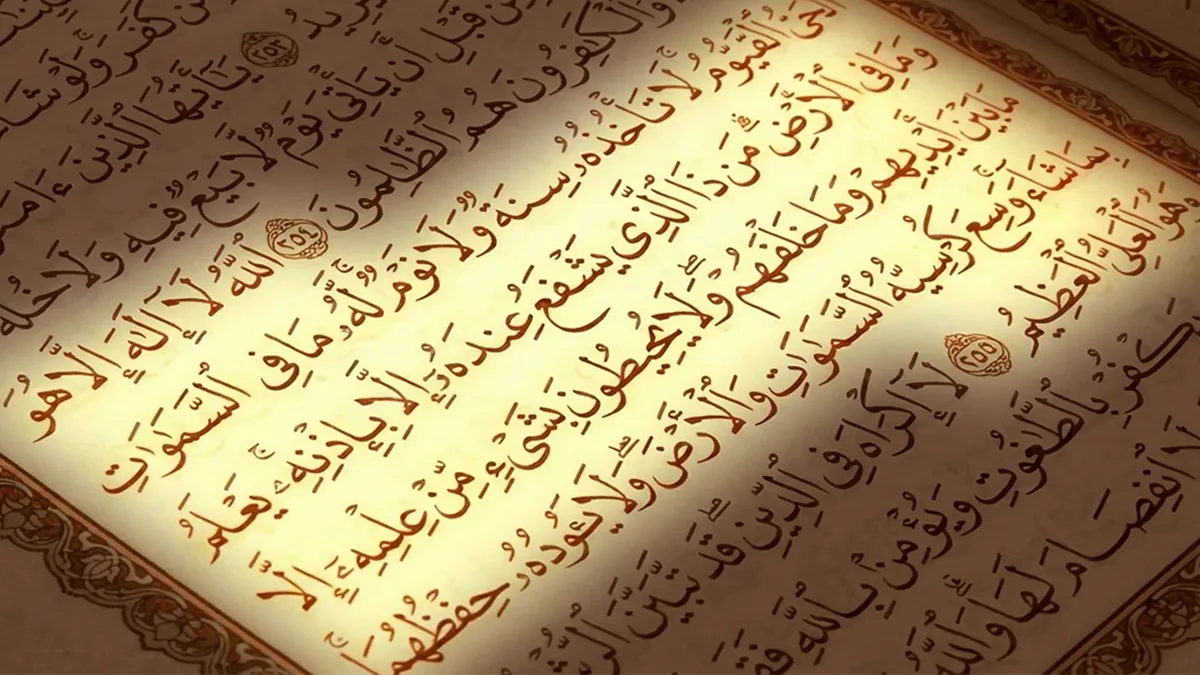 كَفَرَ وَلَوْ شَا
يُرِيدُ ٢٥٣ يَـٰٓأَيُّهَا ٱلَّذِينَ ءَامَنُ
مِن قَبْلِ أَن يَأْتِىَ يَوْمٌ لَّا بَيْعٌ فِيهِ وَلَا خُلَّةٌ
وَٱلْكَـٰفِرُونَ هُمُ ٱلظَّـٰلِمُونَ ٢٥٤ ٱللَّهُ لَآ إِلَـٰهَ إِلَّا هُوَ
ٱلْحَىُّ ٱلْقَيُّومُ لَا تَأْخُذُهُۥ سِنَةٌ وَلَا نَوْمٌ لَّهُۥ مَا فِى ٱلسَّمَـٰوَٰتِ
وَمَا فِى ٱلْأَرْضِ مَن ذَا ٱلَّذِى يَشْفَعُ عِندَهُۥٓ إِلَّا بِإِذْنِهِۦ يَعْلَمُ
مَا بَيْنَ أَيْدِيهِمْ وَمَا خَلْفَهُمْ وَلَا يُحِيطُونَ بِشَىْءٍ مِّنْ عِلْمِهِۦٓ إِلَّا
بِمَا شَآءَ وَسِعَ كُرْسِيُّهُ ٱلسَّمَـٰوَٰتِ وَٱلْأَرْضَ وَلَا يَـُٔودُهُۥ حِفْظُهُمَا
وَهُوَ ٱلْعَلِىُّ ٱلْعَظِيمُ ٢٥٥ لَآ إِكْرَاهَ فِى ٱلدِّينِ قَد تَّبَيَّنَ ٱلرُّشْ
يَكْفُرْ بِٱلطَّـٰغُوتِ وَيُؤْمِنۢ بِٱللَّهِ فَقَدِ
لَا ٱنفِصَامَ لَهَا وَٱللَّهُ